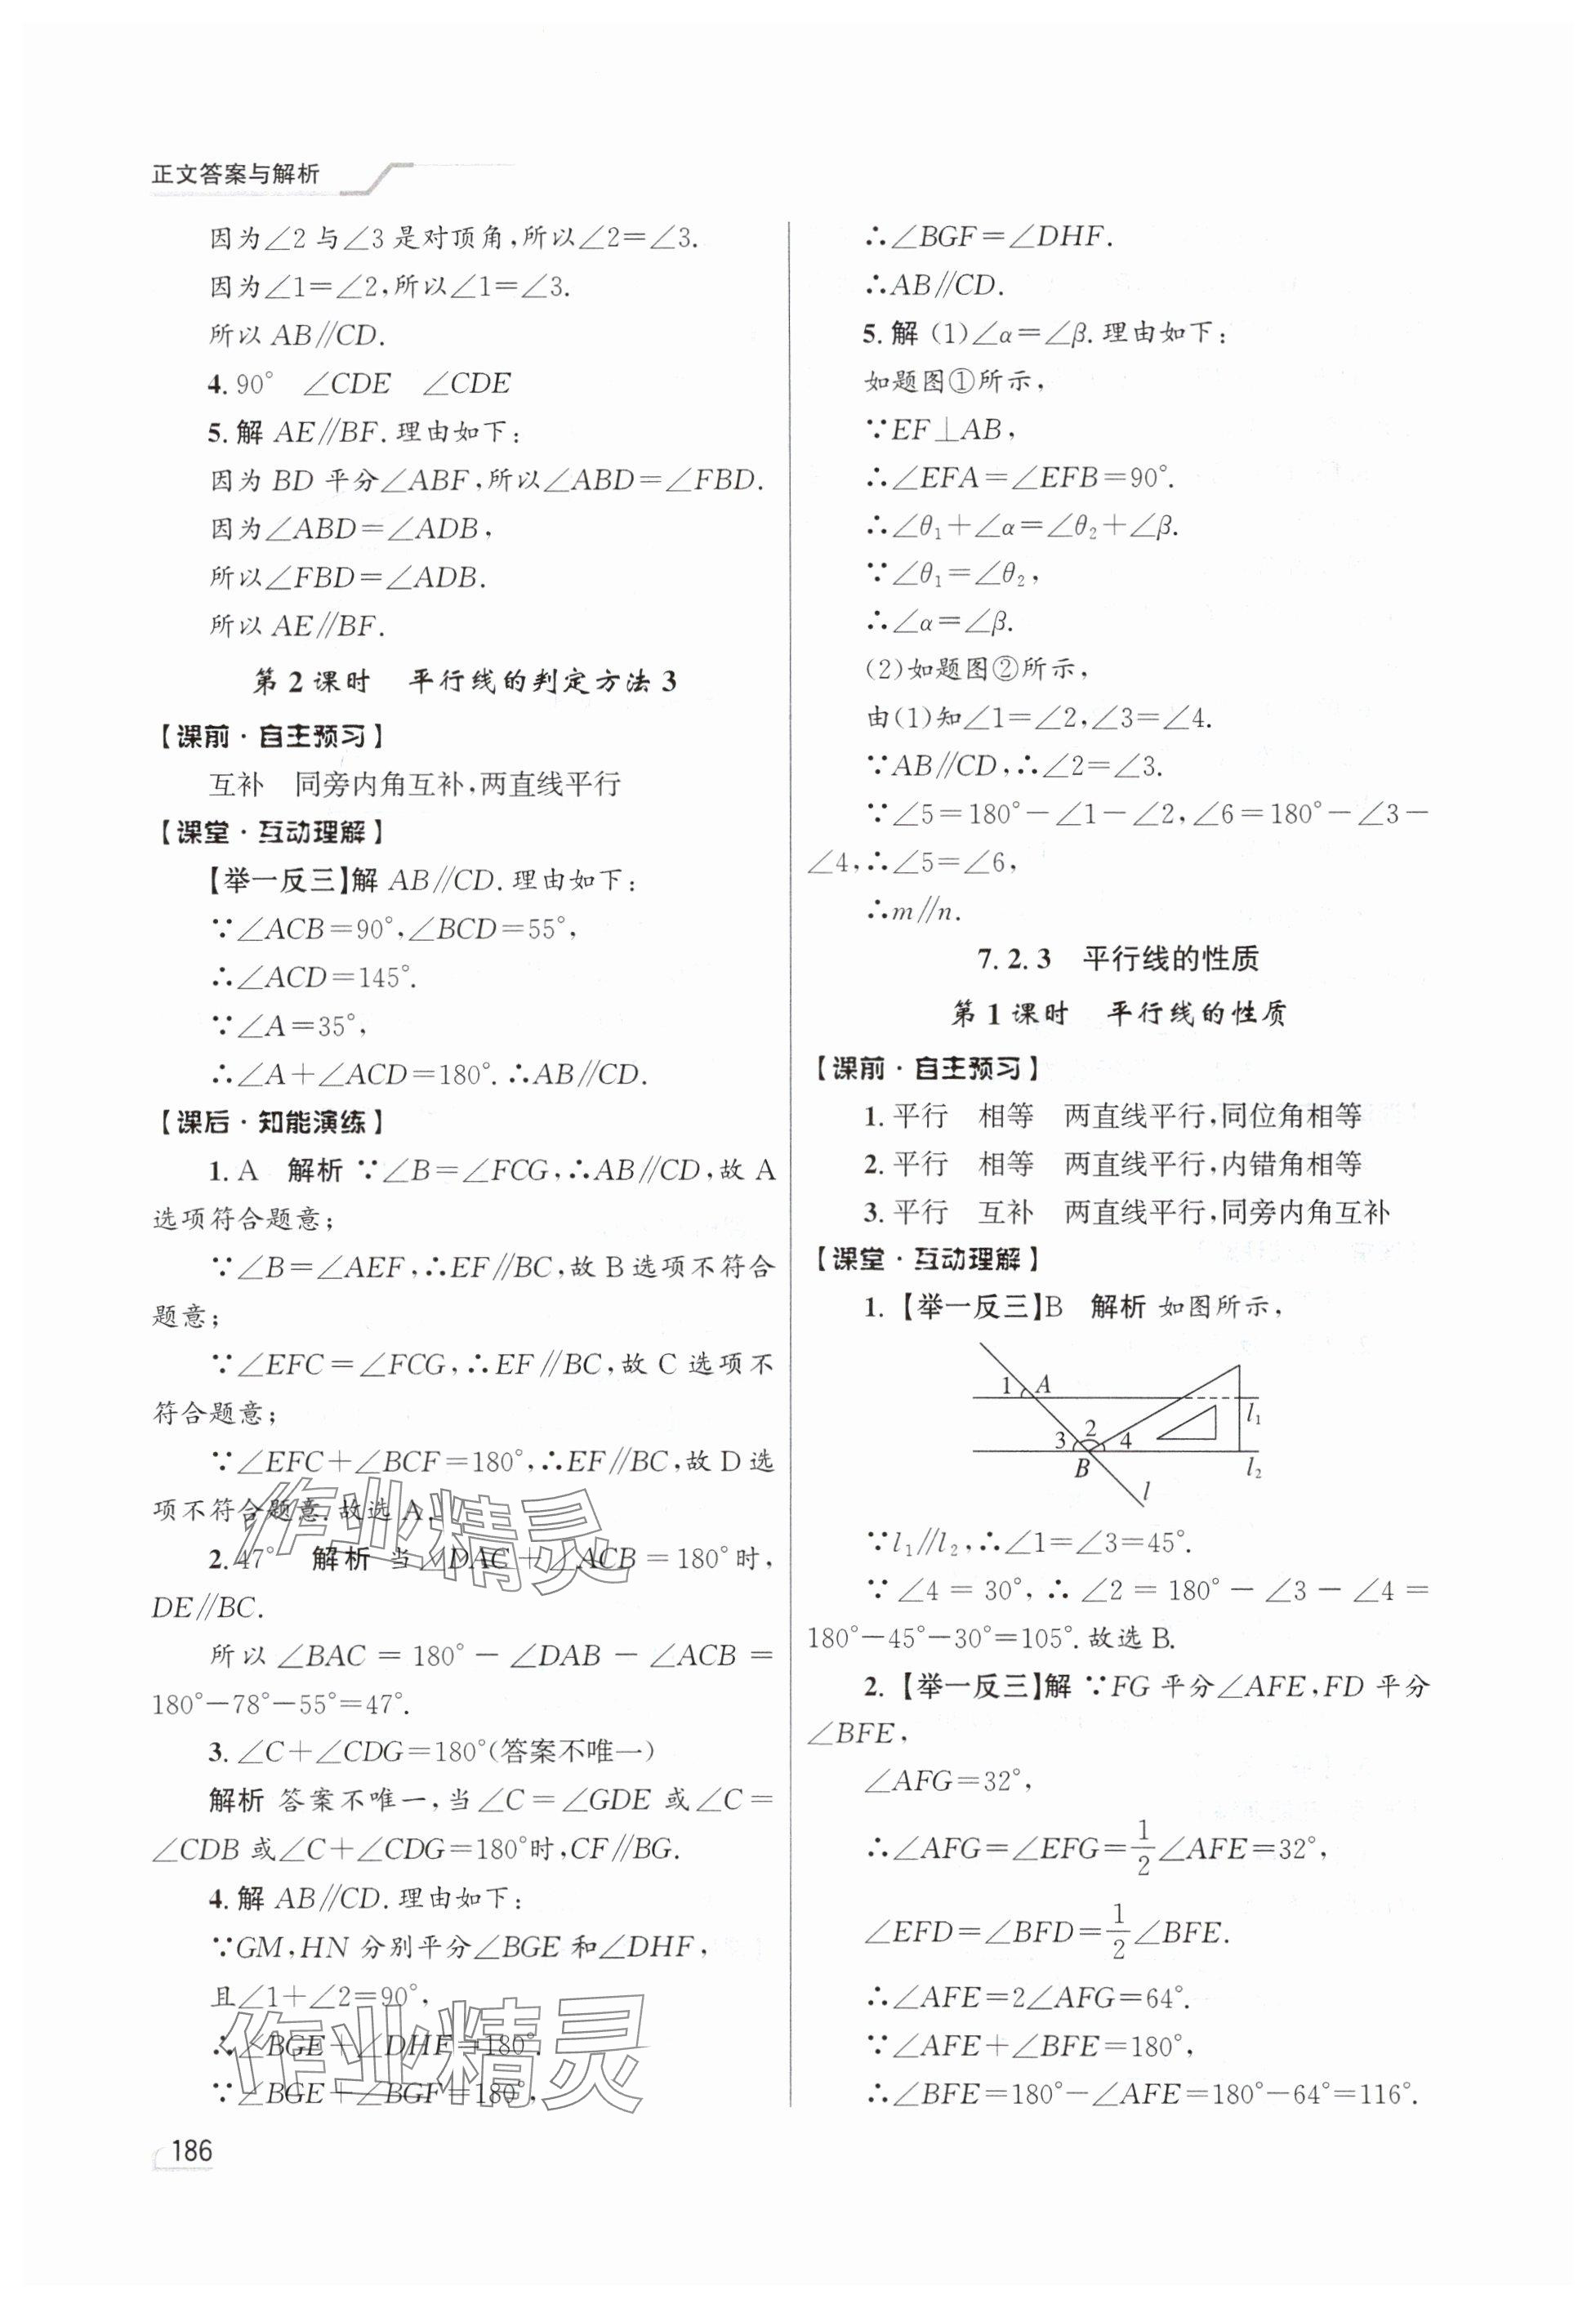 正文答案与解析
因为∠2与∠3是对顶角,所以∠2=∠3.
因为∠1=∠2,所以∠1=∠3.
所以AB∥CD.
4. 90° ∠CDE ∠CDE
5. 解 AE∥BF. 理由如下:
因为BD平分∠ABF,所以∠ABD=∠FBD.
因为∠ABD=∠ADB,
所以∠FBD=∠ADB.
所以AE∥BF.
第2课时 平行线的判定方法3
【课前·自主预习】
互补 同旁内角互补,两直线平行
【课堂·互动理解】
【举一反三】解 AB∥CD. 理由如下:
∵∠ACB=90°,∠BCD=55°,
∴∠ACD=145°.
∵∠A=35°,
∴∠A+∠ACD=180°. ∴AB∥CD.
【课后·知能演练】
1. A 解析 ∵∠B=∠FCG,∴AB∥CD,故A
选项符合题意;
∵∠B=∠AEF,∴EF∥BC,故B选项不符合
题意;
∵∠EFC=∠FCG,∴EF∥BC,故C选项不
符合题意;
∵∠EFC+∠BCF=180°,∴EF∥BC,故D选
项不符合题意. 故选A.
2. 47° 解析 当∠DAC+∠ACB=180°时,
DE∥BC.
所以∠BAC=180°-∠DAB-∠ACB=
180°-78°-55°=47°.
3. ∠C+∠CDG=180°(答案不唯一)
解析 答案不唯一,当∠C=∠GDE或∠C=
∠CDB或∠C+∠CDG=180°时,CF∥BG.
4. 解 AB∥CD. 理由如下:
∵GM,HN分别平分∠BGE和∠DHF,
且∠1+∠2=90°,
∴∠BGE+∠DHF=180°.
∵∠BGE+∠BGF=180°,
186
∴∠BGF=∠DHF.
∴AB∥CD.
5. 解 (1)∠α=∠β. 理由如下:
如题图①所示,
∵EF⊥AB,
∴∠EFA=∠EFB=90°.
∴∠θ₁+∠α=∠θ₂+∠β.
∵∠θ₁=∠θ₂,
∴∠α=∠β.
(2)如题图②所示,
由(1)知∠1=∠2,∠3=∠4.
∵AB∥CD,∴∠2=∠3.
∵∠5=180°-∠1-∠2,∠6=180°-∠3-
∠4,∴∠5=∠6,
∴m∥n.
7.2.3 平行线的性质
第1课时 平行线的性质
【课前·自主预习】
1. 平行 相等 两直线平行,同位角相等
2. 平行 相等 两直线平行,内错角相等
3. 平行 互补 两直线平行,同旁内角互补
【课堂·互动理解】
1. 【举一反三】B 解析 如图所示,
1 A
l₁
3 2 4
B l₂
l
∵l₁∥l₂,∴∠1=∠3=45°.
∵∠4=30°,∴∠2=180°-∠3-∠4=
180°-45°-30°=105°. 故选B.
2. 【举一反三】解 ∵FG平分∠AFE,FD平分
∠BFE,
∠AFG=32°,
∴∠AFG=∠EFG=1/2∠AFE=32°,
∠EFD=∠BFD=1/2∠BFE.
∴∠AFE=2∠AFG=64°.
∵∠AFE+∠BFE=180°,
∴∠BFE=180°-∠AFE=180°-64°=116°.
作业精灵
作业精灵